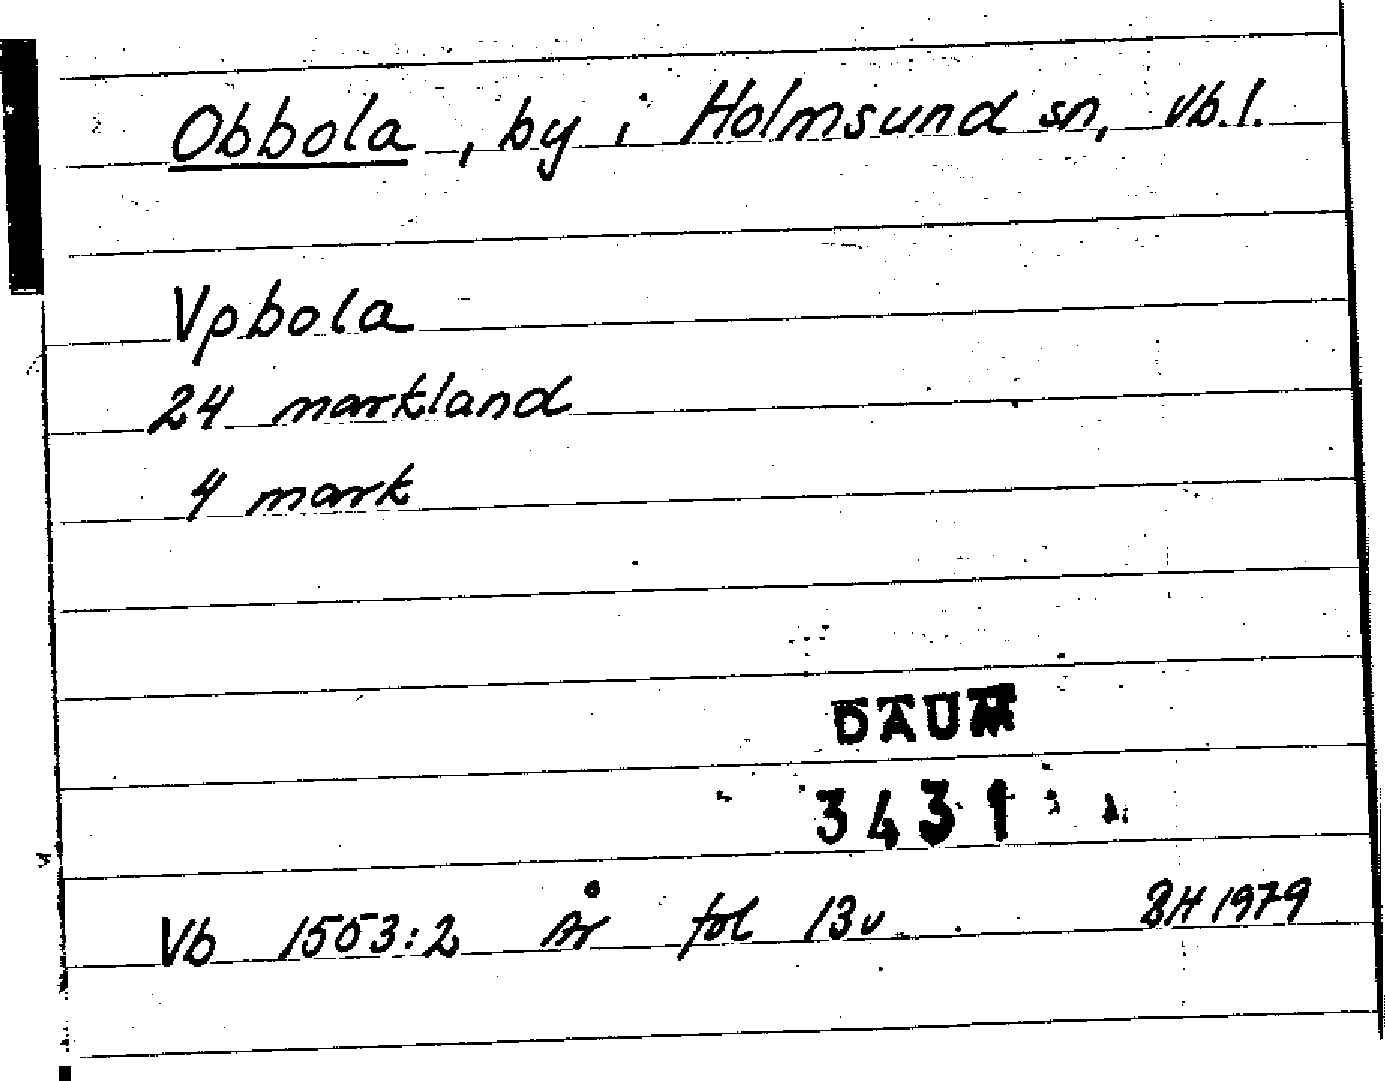 Obbola, by i Holmsund sn, Vb.l.
Vpbola
24 markland
4 mark
DAUM
3431
Vb 1553:2 år fol 13v. BH 1979